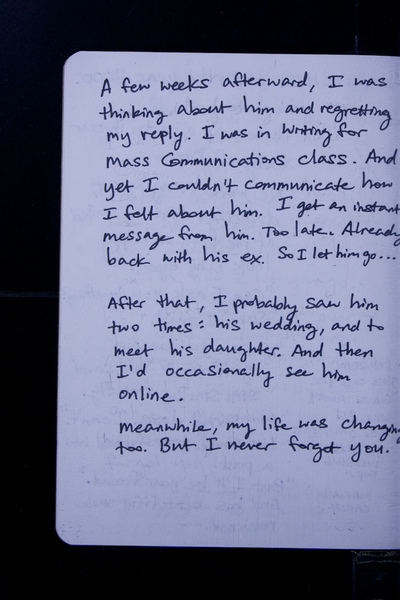 A few weeks afterward, I was
thinking about him and regretting
my reply. I was in Writing for
Mass Communications class. And
yet I couldn't communicate how
I felt about him. I get an instant
message from him. Too late. Already
back with his ex. So I let him go...
After that, I probably saw him
two times: his wedding, and to
meet his daughter. And then
I'd occasionally see him
online.
meanwhile, my life was changing
too. But I never forgot you.